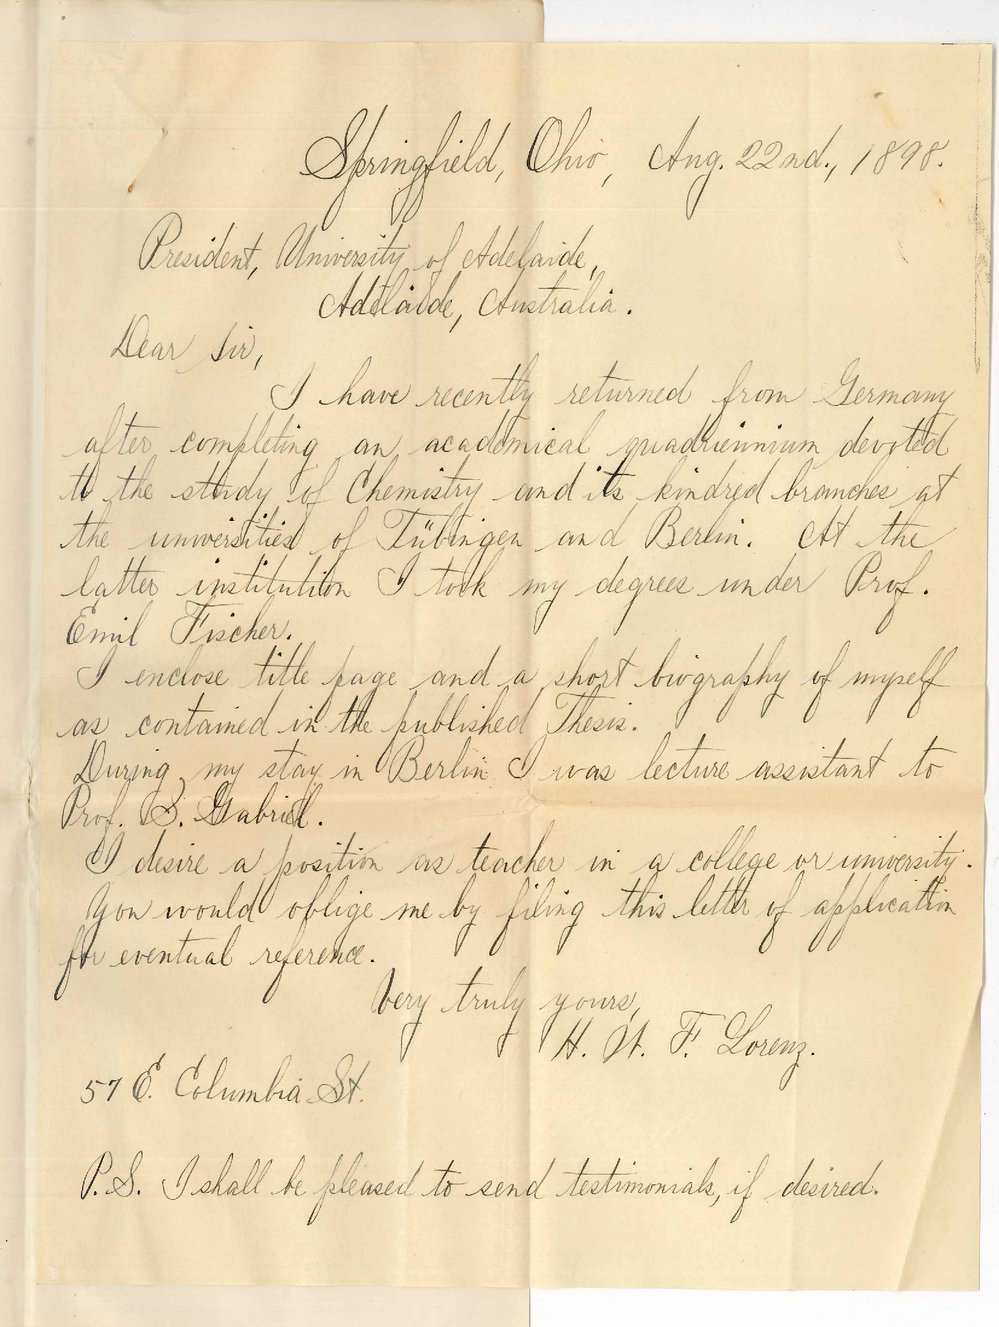 Springfield, Ohio, Aug. 22nd., 1898.
President, University of Adelaide,
Adelaide, Australia.
Dear Sir,
I have recently returned from Germany
after completing an academical quadriennium devoted
to the study of Chemistry and its kindred branches at
the universities of Tübingen and Berlin. At the
latter institution I took my degrees under Prof.
Emil Fischer.
I enclose title page and a short biography of myself
as contained in the published Thesis.
During my stay in Berlin I was lecture assistant to
Prof. S. Gabriel.
I desire a position as teacher in a college or university.
You would oblige me by filing this letter of application
for eventual reference.
Very truly yours,
H. W. F. Lorenz.
57 E. Columbia St.
P.S. I shall be pleased to send testimonials, if desired.